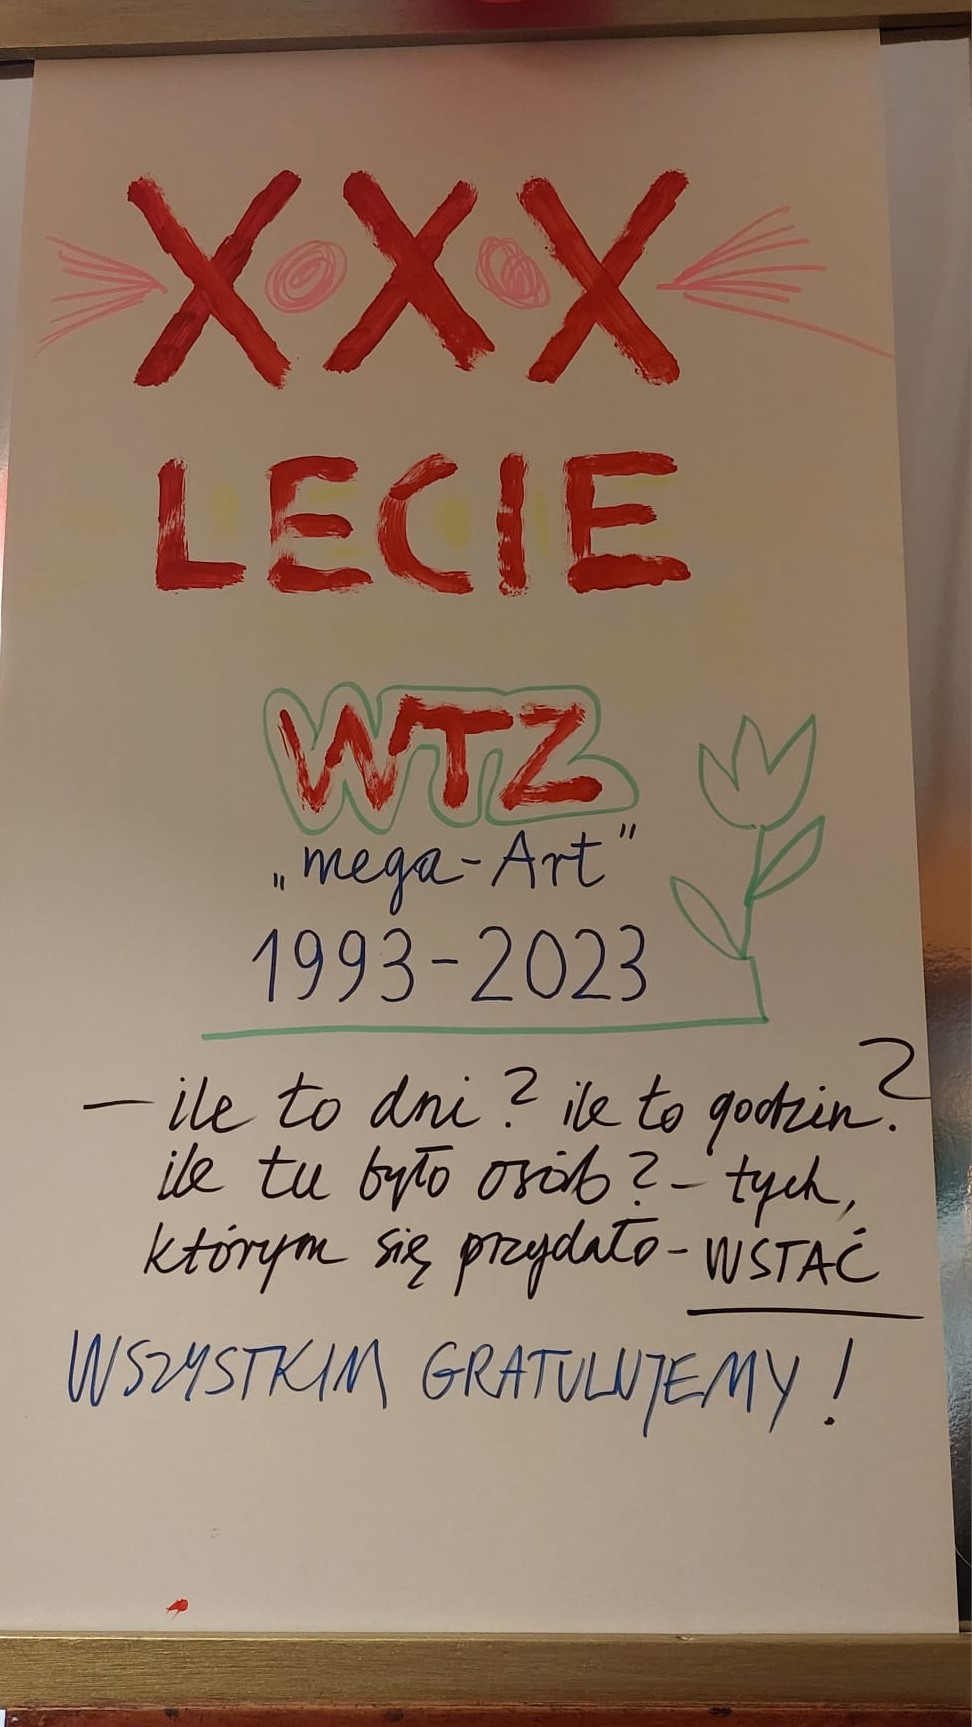 XXX
LECIE
WTZ
„mega-Art"
1993-2023
— ile to dni? ile to godzin?
ile tu było osób? - tych,
którym się przydało - WSTAĆ
WSZYSTKIM GRATULUJEMY!